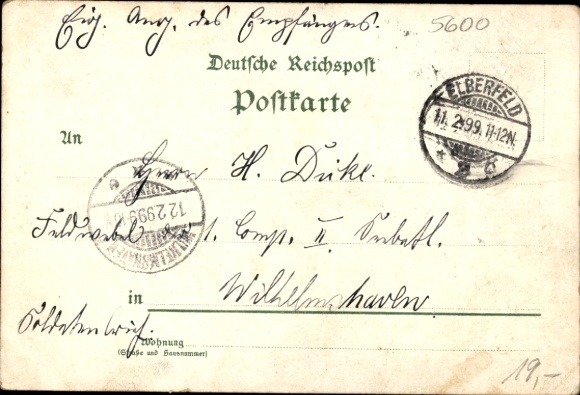 Eig. Ang. des Empfängers.
5600
Deutsche Reichspost
Postkarte
ELBERFELD
11.2.99.11-12N.
An
Herrn H. Düke.
12.2.99.9-10V
WILHELMSHAVEN
Feldwebel der 1. Comp. II Seebatl.
in Wilhelmshaven
Soldatenbrief.
Wohnung
(Straße und Hausnummer)
19,-